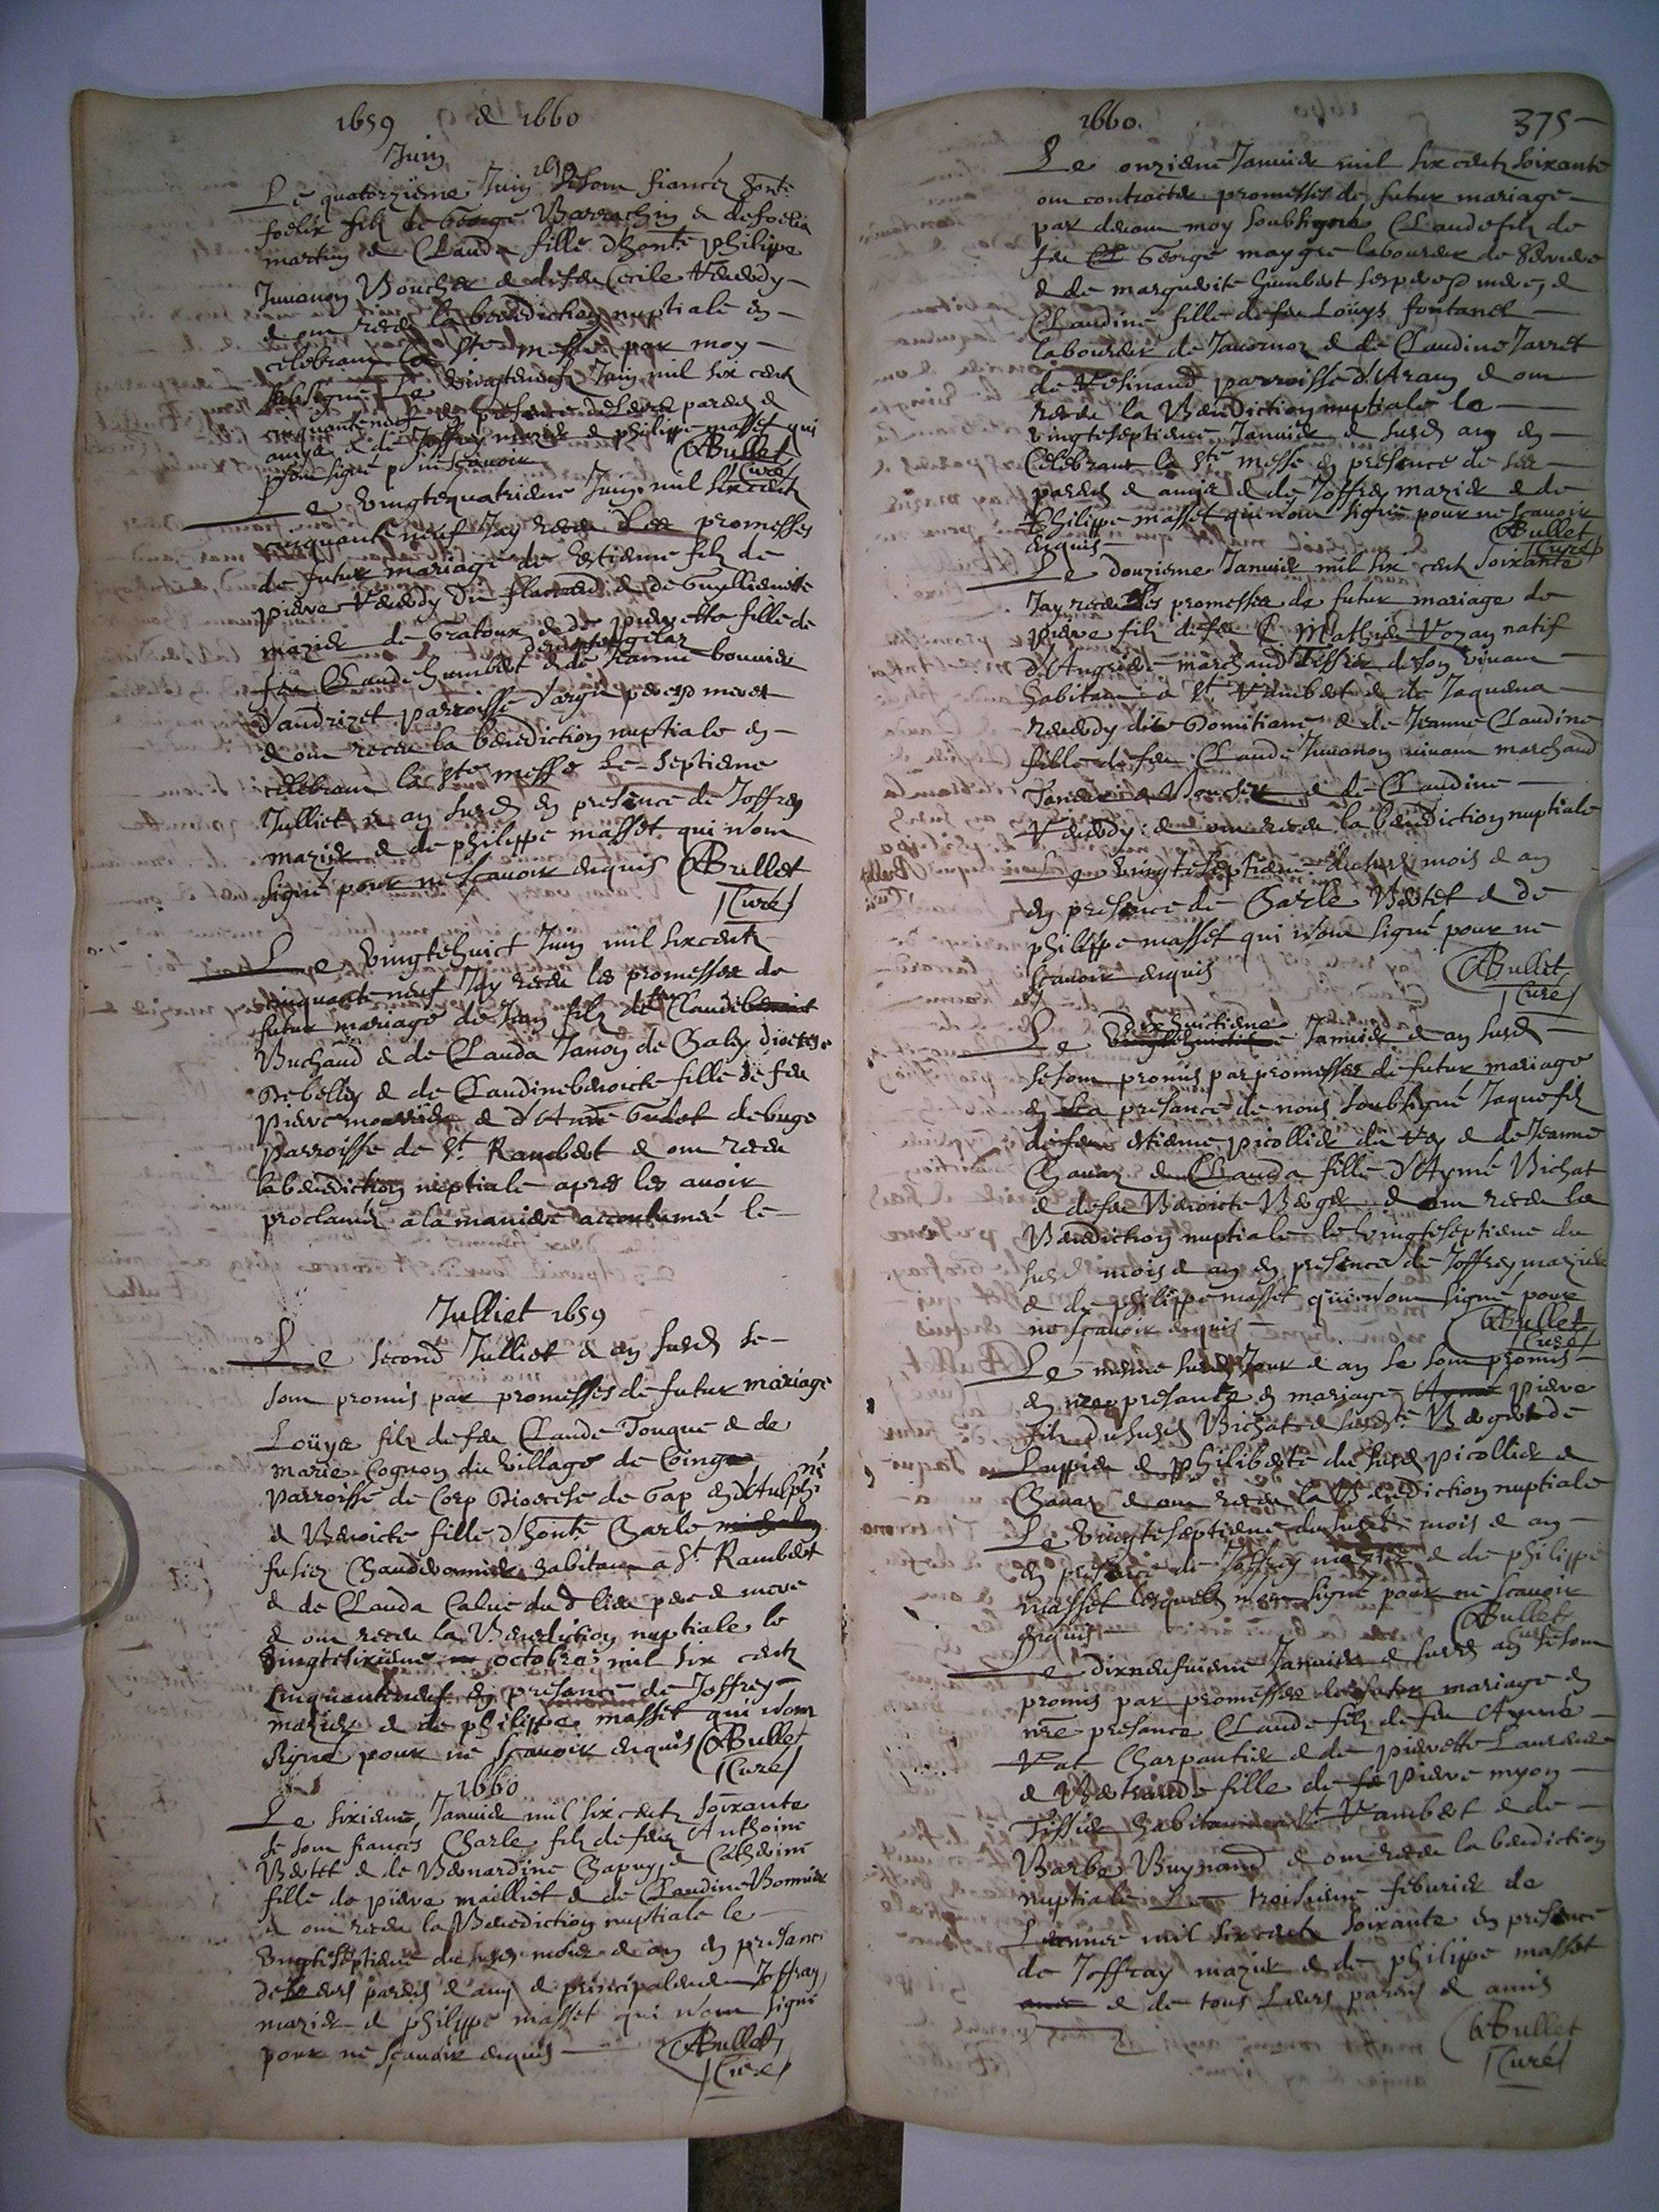 1659 & 1660
Juin
Le quatorzieme Juin 1659 se sont fiancés honte
foelix filz de George Barrachin & de foelia
martin & Clauda fille d'honte philippe
Juuanon Boucher & de feu Cecile Reuerdy
& ont receu la benediction nuptiale en
celebrant la Ste messe par moy
soubsigné le vingtneuf Juin mil six centz
cinquante neuf en presence de leurs parens &
amys & de Joffrey mazier & philippe masset qui
n'ont signé p ne sçauoir
Bullet
Curé
Le vingtequatrieme Juin mil six centz
cinquante neuf Jay receu les promesses
de futur mariage de Estienne filz de
pierre Reuerdy du & de Guyllemette
mazier de Gratoux & de pierrette fille de
feu Claude humbert & de Jeanne bouuier
d'audrizet parroisse d'argis pere & mere
& ont receu la benediction nuptiale en
celebrant la Ste messe Le Septieme
Julliet & an susd en presence de Joffrey
mazier & de philippe masset qui n'ont
signé pour ne sçauoir enquis Bullet
Curé
Le vingtehuict Juin mil six centz
cinquante neuf Jay receu les promesses de
futur mariage de Jean filz de feu Claude
Buchard & de Clauda Janon de diocese
de belley & de Claudine benoicte fille de feu
pierre & d'Anne Gudet de buge
parroisse de St Rambert & ont receu
la benediction nuptiale apres les auoir
proclamés a la maniere accoutumeé le
Julliet 1659
Le second Julliet & an susd se
sont promis par promesses de futur mariage
Loüys filz de feu Claude Tonque & de
marie Coqnon du village de Coinge
parroisse de Corp Diocese de Gap en d'Aulphiné
& Benoicte fille d'honte Charle
fusier Chauderonnier habitant a St Rambert
& de Clauda Calue dud lieu pere & mere
& ont receu la Benediction nuptiale le
vingtesixieme octobre mil six centz
Cinquante neuf en presance de Joffrey
mazier & de philippe masset qui n'ont
signé pour ne sçauoir enquis Bullet
Curé
1660
Le sixieme Januier mil six centz soixante
se sont fiancés Charle filz de feu Anthoine
Bertet & de Bernardine Chapuy & Catherine
fille de pierre mailliet & de Claudine Bonnier
& ont receu la Benediction nuptiale le
vingteseptieme du susd mois & an en presance
de leurs parens & amy & principalement Joffray
mazier & philippe masset qui n'ont signé
pour ne sçauoir enquis
Bullet
Curé
1660. 375
Le onzieme Januier mil six centz soixante
ont contracter promesses de futur mariage
par deuant moy soubsigné Claude filz de
feu George maygre laboureur de
& de marguerite humbert ses pere & mere, &
Claudine fille de feu Loüys fontanel
laboureur de Jauornoz & de Claudine Jarret
de Resinand parroisse d'Aran & ont
receu la Benediction nuptiale le
vingteseptieme Januier & susd an en
Celebrant la Ste messe en presence de ses
parens & amys & de Joffrey mazier & de
Philippe masset qui n'ont signé pour ne sçauoir
enquis
Bullet
Curé
Le douzieme Januier mil six centz soixante
Jay receu les promesses de futur mariage de
pierre filz de feu Mathieu Rozan natif
d'Angriere marchand Tissier de son viuant
habitant a St Rambert & de Jaquema
Reuerdy dite Domitiane & de Jeanne Claudine
fille de feu Claude Juuanon viuant marchand
Taneur & Boucher & de Claudine
Reuerdy: & ont receu la benediction nuptiale
Le vingteseptieme du susd mois & an
en presence de Charle Bertet & de
philippe masset qui n'ont signé pour ne
sçauoir enquis
Bullet
Curé
Le Dixhuictieme Januier & an susd
se sont promis par promesses de futur mariage
en la presance de nous soubsigné Jaque filz
de feu estienne picollier du Rey & de Jeanne
Chauaz & Clauda fille d'Aymé Bichat
& de feu Benoicte Berger & ont receu la
Benediction nuptiale le vingteseptieme du
susd mois & an en presence de Joffrey mazier
& de philippe masset qui n'ont signé pour
ne sçauoir enquis
Bullet
Curé
Le mesme susd Jour & an se sont promis
en nre presante en mariage pierre
filz du susd Bichat & susdte Berger de
Luppieu & philiberte du susd Picollier &
Chauaz & ont receu la Benediction nuptiale
Le vingteseptieme du susd mois & an
en presence de Joffrey mazier & de philippe
masset lesquels n'ont signé pour ne sçauoir
enquis
Bullet
Curé
Le dixneufuieme Januier & susd an se sont
promis par promesses de futur mariage en
nre presance Claude filz de feu Aymé
Rat Charpantier & de pierrette Laurent
& Bertrande fille de pierre myon
Tissier habitant a St Rambert & de
Barbe Buynand & ont receu la benediction
nuptiale Le troisieme feburier de
L'année mil six centz soixante en presence
de Joffray mazier & de philippe masset
& de tous Leurs parens & amis
Bullet
Curé